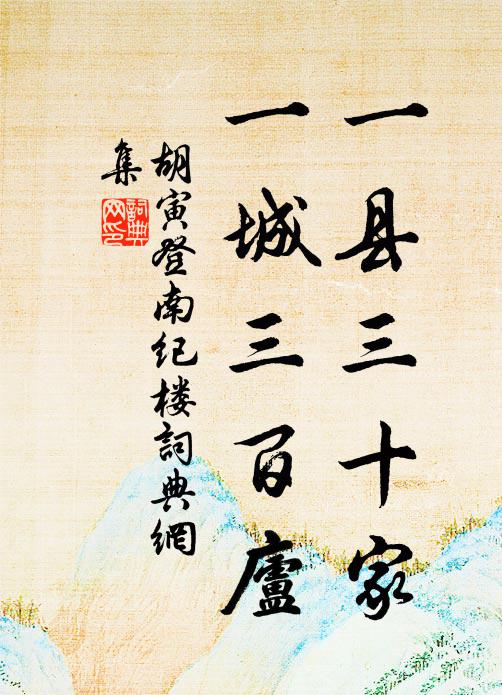 一县三十家
一城三百廬
胡寅登南纪楼詞典網
集
詞典
网印